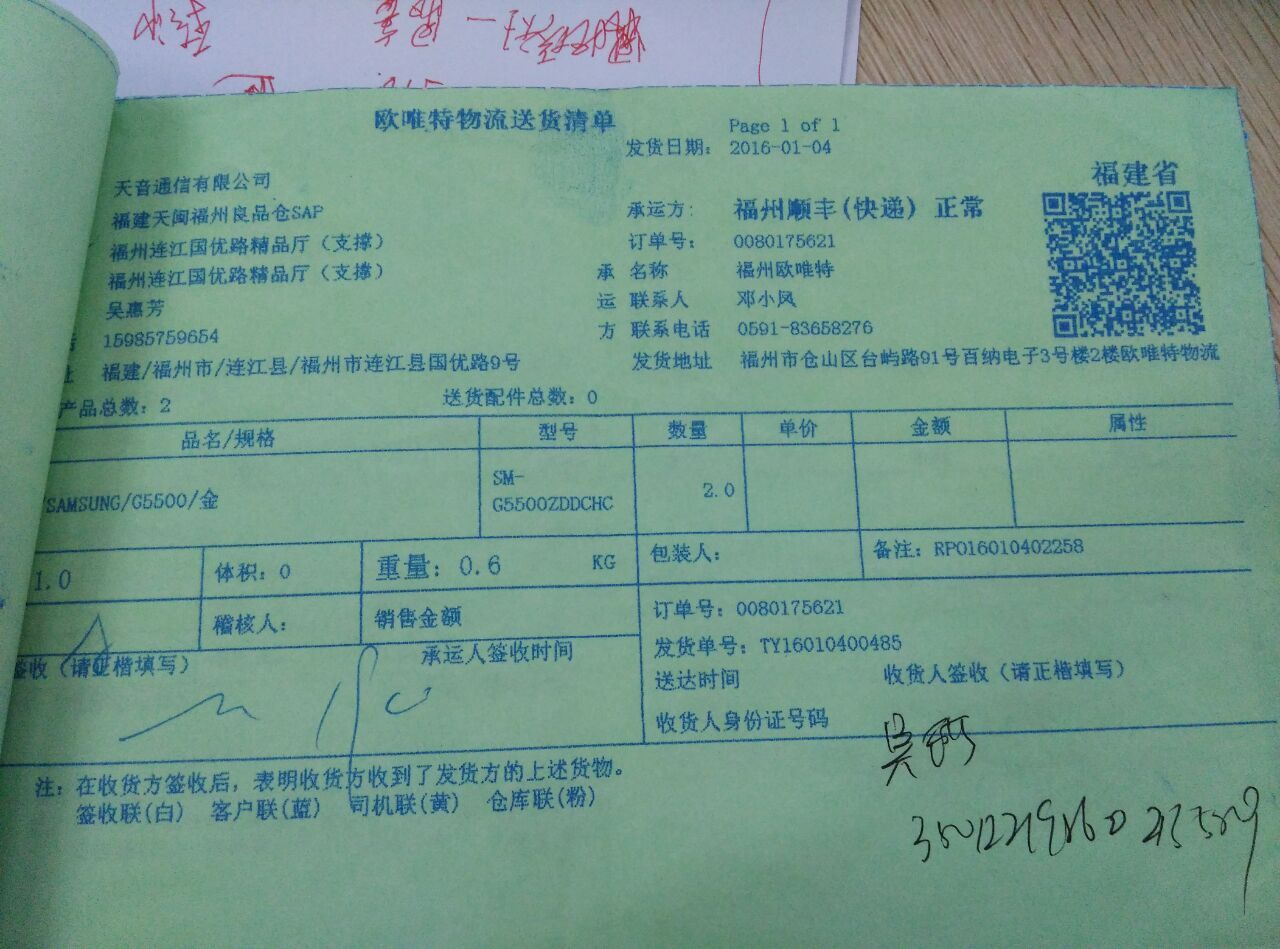 欧唯特物流送货清单
Page 1 of 1
发货日期: 2016-01-04
福建省
天音通信有限公司
福建天闽福州良品仓SAP
承运方: 福州顺丰(快递) 正常
福州连江国优路精品厅（支撑）
订单号: 0080175621
福州连江国优路精品厅（支撑）
承 名称 福州欧唯特
吴惠芳
运 联系人 邓小凤
15985759654
方 联系电话 0591-83658276
福建/福州市/连江县/福州市连江县国优路9号
发货地址 福州市仓山区台屿路91号百纳电子3号楼2楼欧唯特物流
产品总数: 2 送货配件总数: 0
品名/规格 型号 数量 单价 金额 属性
/SAMSUNG/G5500/金 SM-G5500ZDDCHC 2.0
1.0 体积: 0 重量: 0.6 KG 包装人: 备注: RPO16010402258
稽核人: 销售金额
订单号: 0080175621
发货单号: TY16010400485
签收（请正楷填写） 承运人签收时间
送达时间 收货人签收（请正楷填写）
收货人身份证号码
注: 在收货方签收后，表明收货方收到了发货方的上述货物。
签收联(白) 客户联(蓝) 司机联(黄) 仓库联(粉)